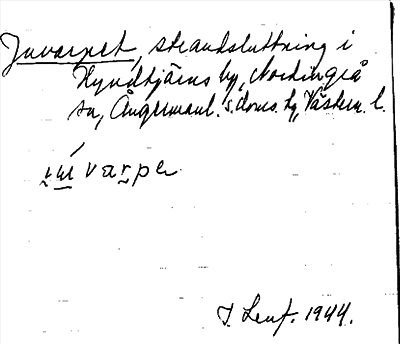 Juvarpet, strandsluttning i
Hyndtjärns by, Nordingrå
sn, Ångermanl. s. doms. hg, Västern. l.
varpe
J. Lenf. 1944.